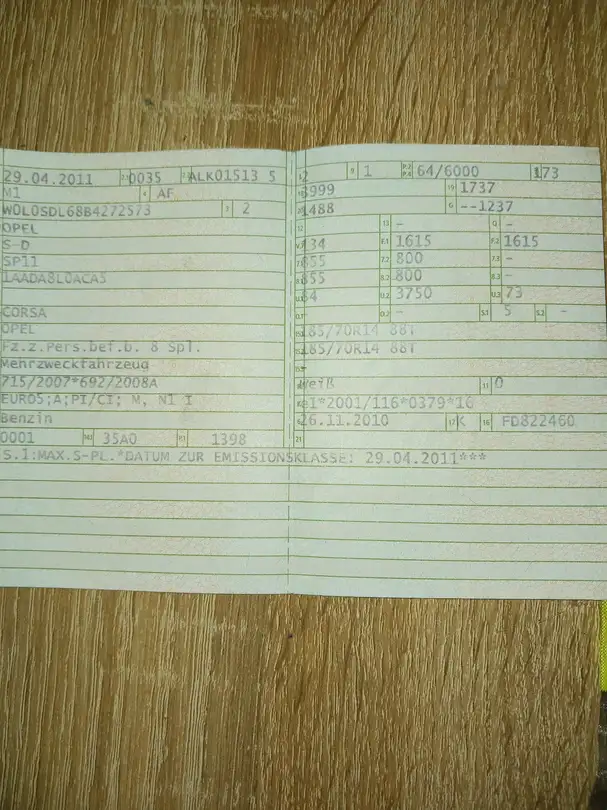 29.04.2011 0035 ALK01513 5
M1 4 AF
W0L0SDL68B4272573 3 2
OPEL
S-D
SP11
1AADA8L0ACA5
CORSA
OPEL
Fz.z.Pers.bef.b. 8 Spl.
Mehrzweckfahrzeug
715/2007*692/2008A
EURO5;A;PI/CI; M, N1 I
Benzin
0001 35A0 1398
2 9 1 P.2 P.4 64/6000 173
3999 19 1737
1488 G --1237
13 - Q -
134 F.1 1615 F.2 1615
855 7.2 800 7.3 -
855 8.2 800 8.3 -
84 U.2 3750 U.3 73
O.2 - S.1 5 S.2 -
185/70R14 88T
185/70R14 88T
weiß 11 0
e1*2001/116*0379*16
26.11.2010 17 K 16 FD822460
21
S.1:MAX.S-PL.*DATUM ZUR EMISSIONSKLASSE: 29.04.2011***